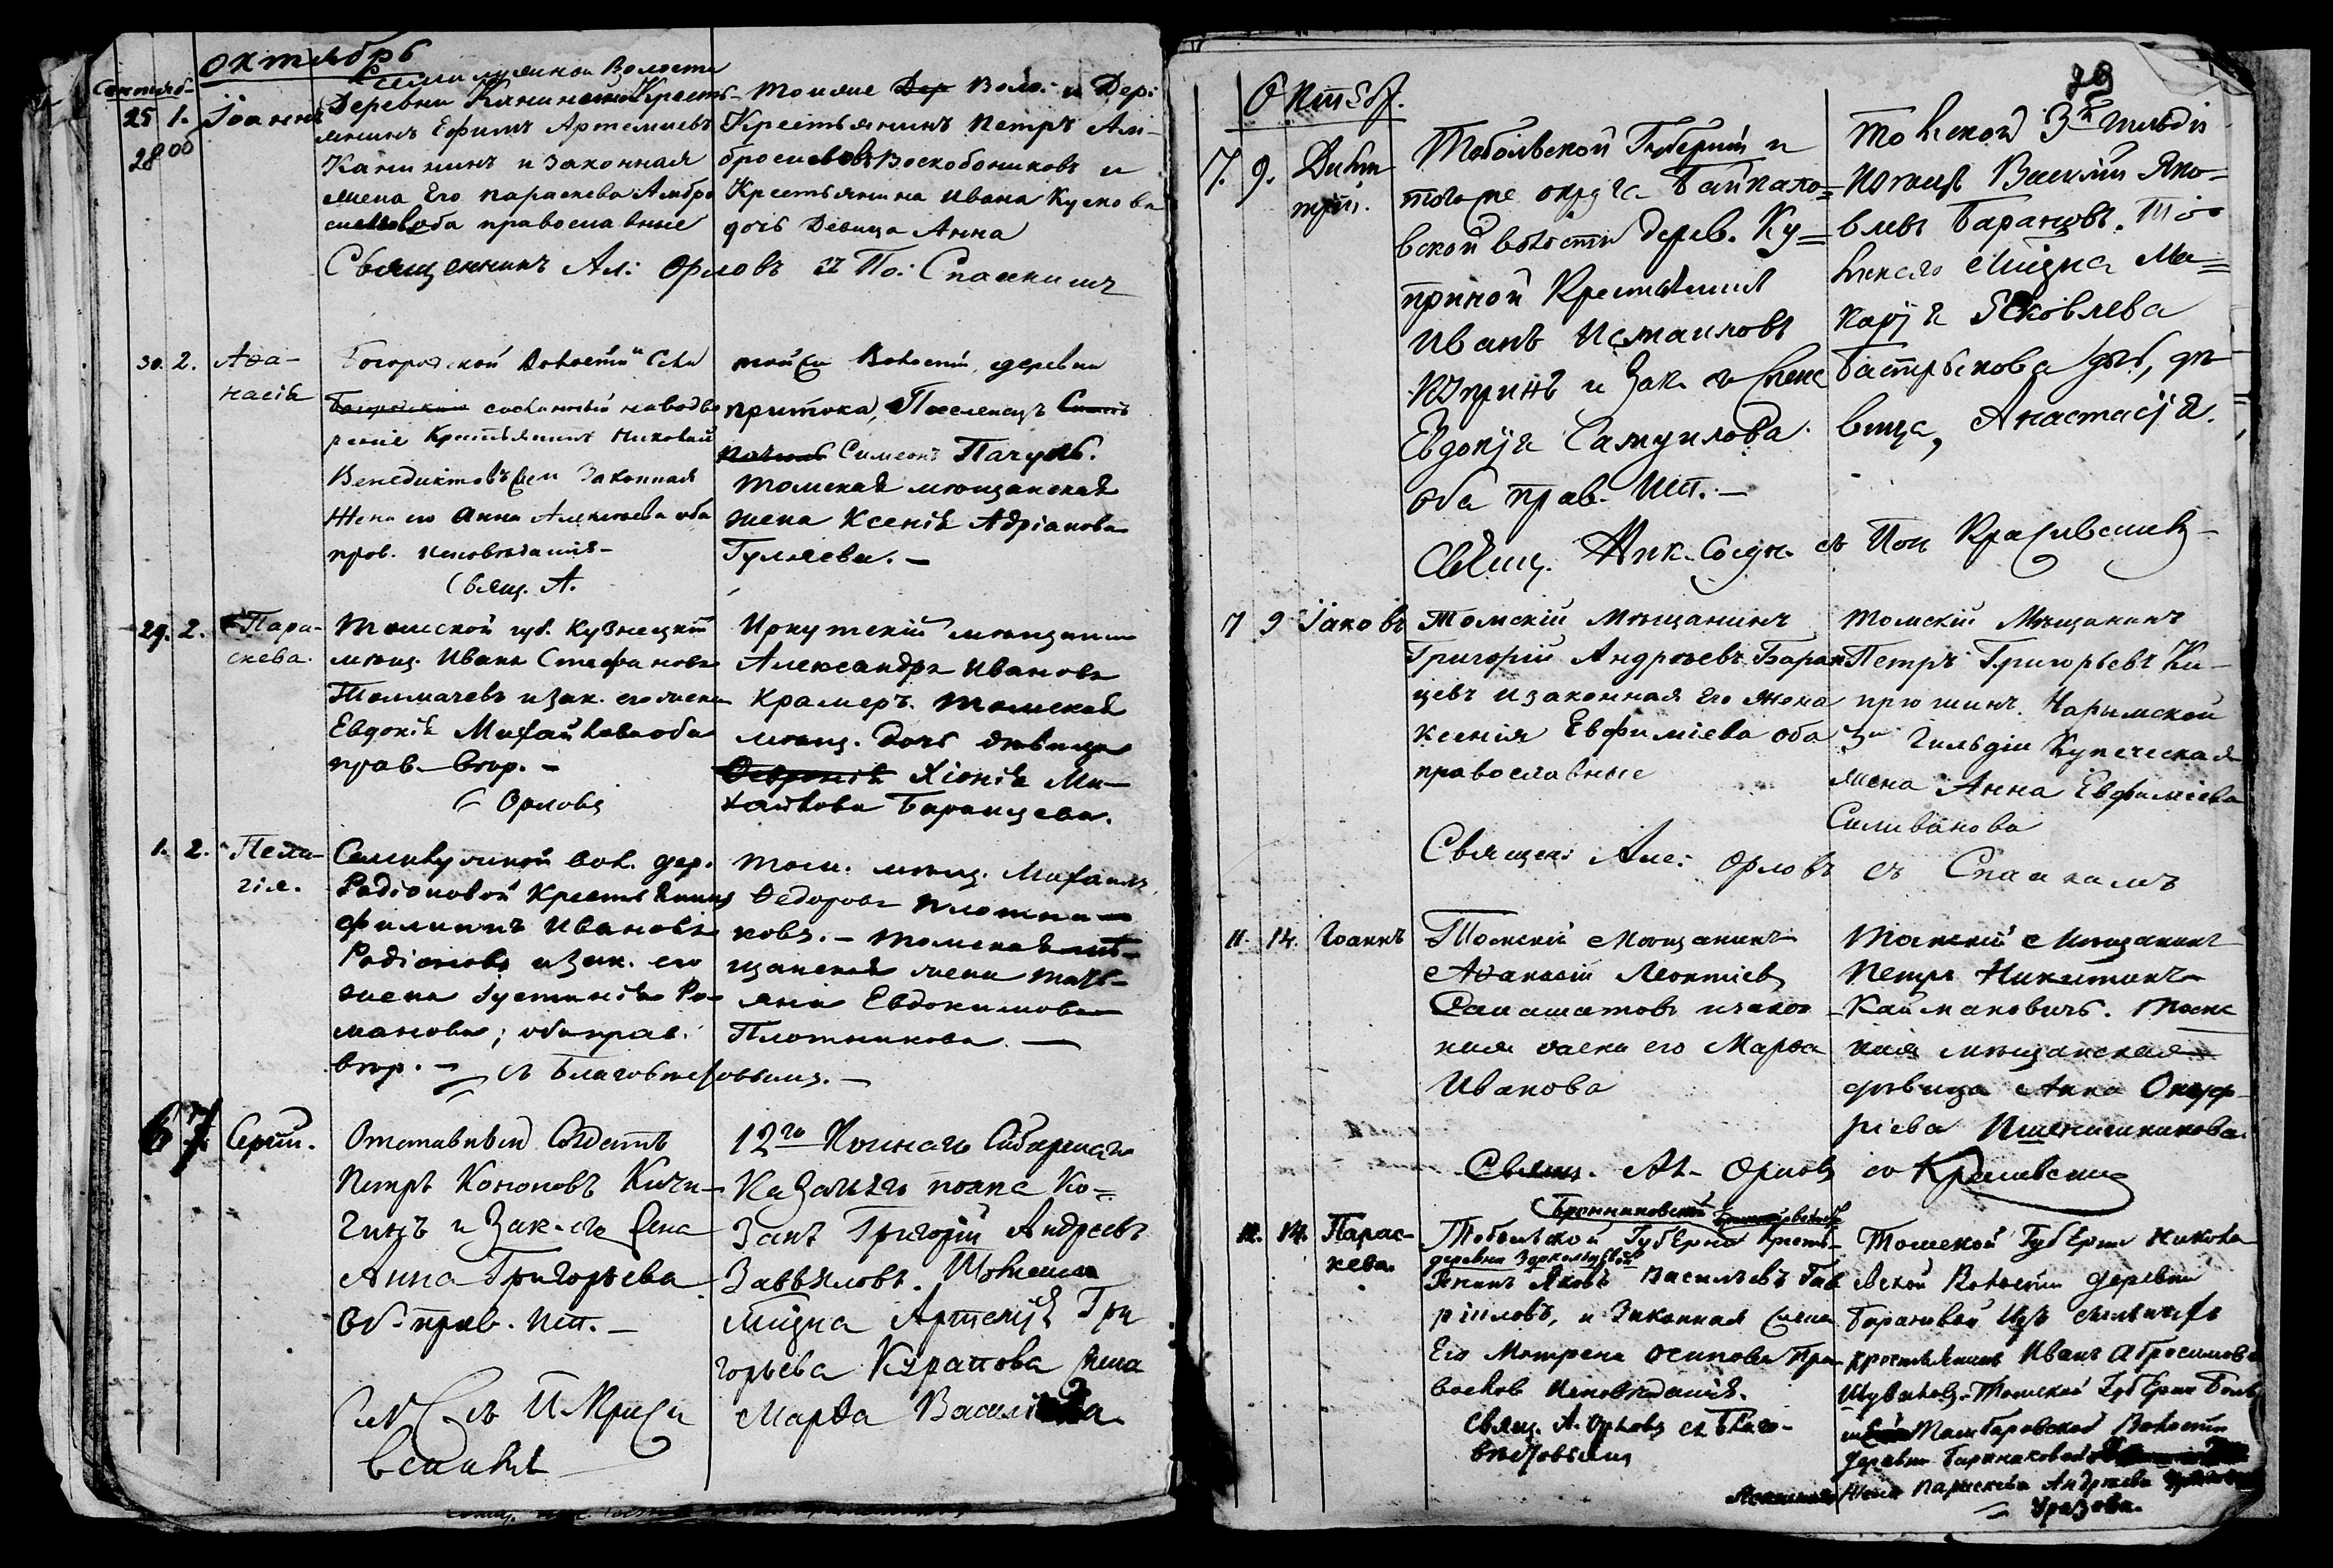 Октябрь
Сентяб-
25 1. Іоаннъ
28
Семилужной Волости
Деревни Кининской Крестья-
янинъ Ефимъ Артемиевъ
Кинининъ и законная
жена Его Параскева Амбро
оба православные
тояже Воло: и Дер:
Крестьянинъ Петръ Ам-
бросиевъ Воскобойниковъ и
Крестьянина Ивана Кускова
дочь Девица Анна
Священникъ Ал: Орловъ съ По: Спасскимъ
30. 2. Аѳа-
насій
Богородской Волости Села
Крестьянинъ Николай
Венедиктовъ и Законная
Жена его Анна Алексѣева оба
прав. исповѣданія-
Свящ. А.
той же Волости, деревни
притока, Поселенецъ
Симеонъ Пачуль.
томская мѣщанская
жена Ксенія Адріанова
Гуляева. -
29. 2. Пара-
скева.
Томской губ. Кузнецкій
мѣщ. Иванъ Стефановъ
Толмачевъ и зак. его жена
Евдокія Михайлова оба
прав. вѣр. -
С Орловъ
Иркутскій мѣщанинъ
Александръ Ивановъ
Крамеръ. Томская
мѣщ. дочь дѣвица
Хіонія Ми-
хайлова Баранцева.
1. 2. Пела-
гія.
Семилужной вол. дер.
Родіоновой Крестьянинъ
Филиппъ Ивановъ
Родіоновъ и зак. его
жена Іустинія Ро-
манова; оба прав.
вѣр. - съ Благовѣстовымъ. -
Том. мѣщ. Михаилъ
Ѳедоровъ Плотни-
ковъ. - Томская мѣ-
щанская жена Тать-
яна Евдокимова
Плотникова -
6 7. Сергій.
Отставный Солдатъ
Петръ Кононовъ Кичи-
гинъ и Зак. его Жена
Анна Григорьева
Об. прав. исп. -
12го Коннаго Сибирскаго
Казачьяго полка Ко-
закъ Григорій Андреевъ
Завьяловъ. Томскаго
мѣщна Артемія Гри
горьева Курапова Жена
Марѳа Васильева
Октябр.
29
7. 9. Дими
трій.
Тобольской Губерніи и
тогоже округа Байкало=
вской волости дерев. Ку=
приной Крестьянинъ
Иванъ Исмаиловъ
Купринъ и Зак. его Жена
Евдокія Самуилова
оба прав. исп. -
Томской 3й гильдіи
купецъ Василій Яко=
влевъ Баранцовъ. То=
мскаго мѣщна Ма=
карія Яковлева
Бастрыкова дочь, дѣ-
вица, Анастасія.
Свящ. Ник. Сосун. съ Пон Красивскимъ
7 9 Іаковъ
Томскій Мѣщанинъ
Григорій Андреевъ Баран
цевъ и законная его жена
Ксенія Евфиміева оба
православные
Томскій Мѣщанинъ
Петръ Григорьевъ Ки-
прюшинъ. Нарымской
3й Гильдіи Купеческая
жена Анна Евфиміева
Силиванова
Священ: Але: Орловъ съ Спасскимъ
11. 14. Іоаннъ
Томскій Мѣщанинъ
Аѳанасій Леонтіевъ
и закон
ная жена его Марѳа
Иванова
Томскій Мѣщанинъ
Петръ Никитинъ
Каймановичъ. Томс
кая мѣщанская
дѣвица Анна Онуф-
ріева Пшеничникова.
Свящ. Ал- Орловъ со Красивскимъ
11. 14. Парас-
кева.
Бронниковской
Тобольской Губерніи Кресть-
деревни
янинъ Яковъ Васильевъ Гав
риловъ, и Законная Жена
Его Матрена Осипова Пра-
вослов Исповѣданія.
Свящ. А. Орловъ съ Благо-
вѣстовымъ
Томской Губерніи Никола
евской Волости деревни
крестьянинъ Иванъ Абросимовъ
Шуваловъ. Томской Губерніи
Волости
Деревни
Жена Параскева Андреева
Уразова.